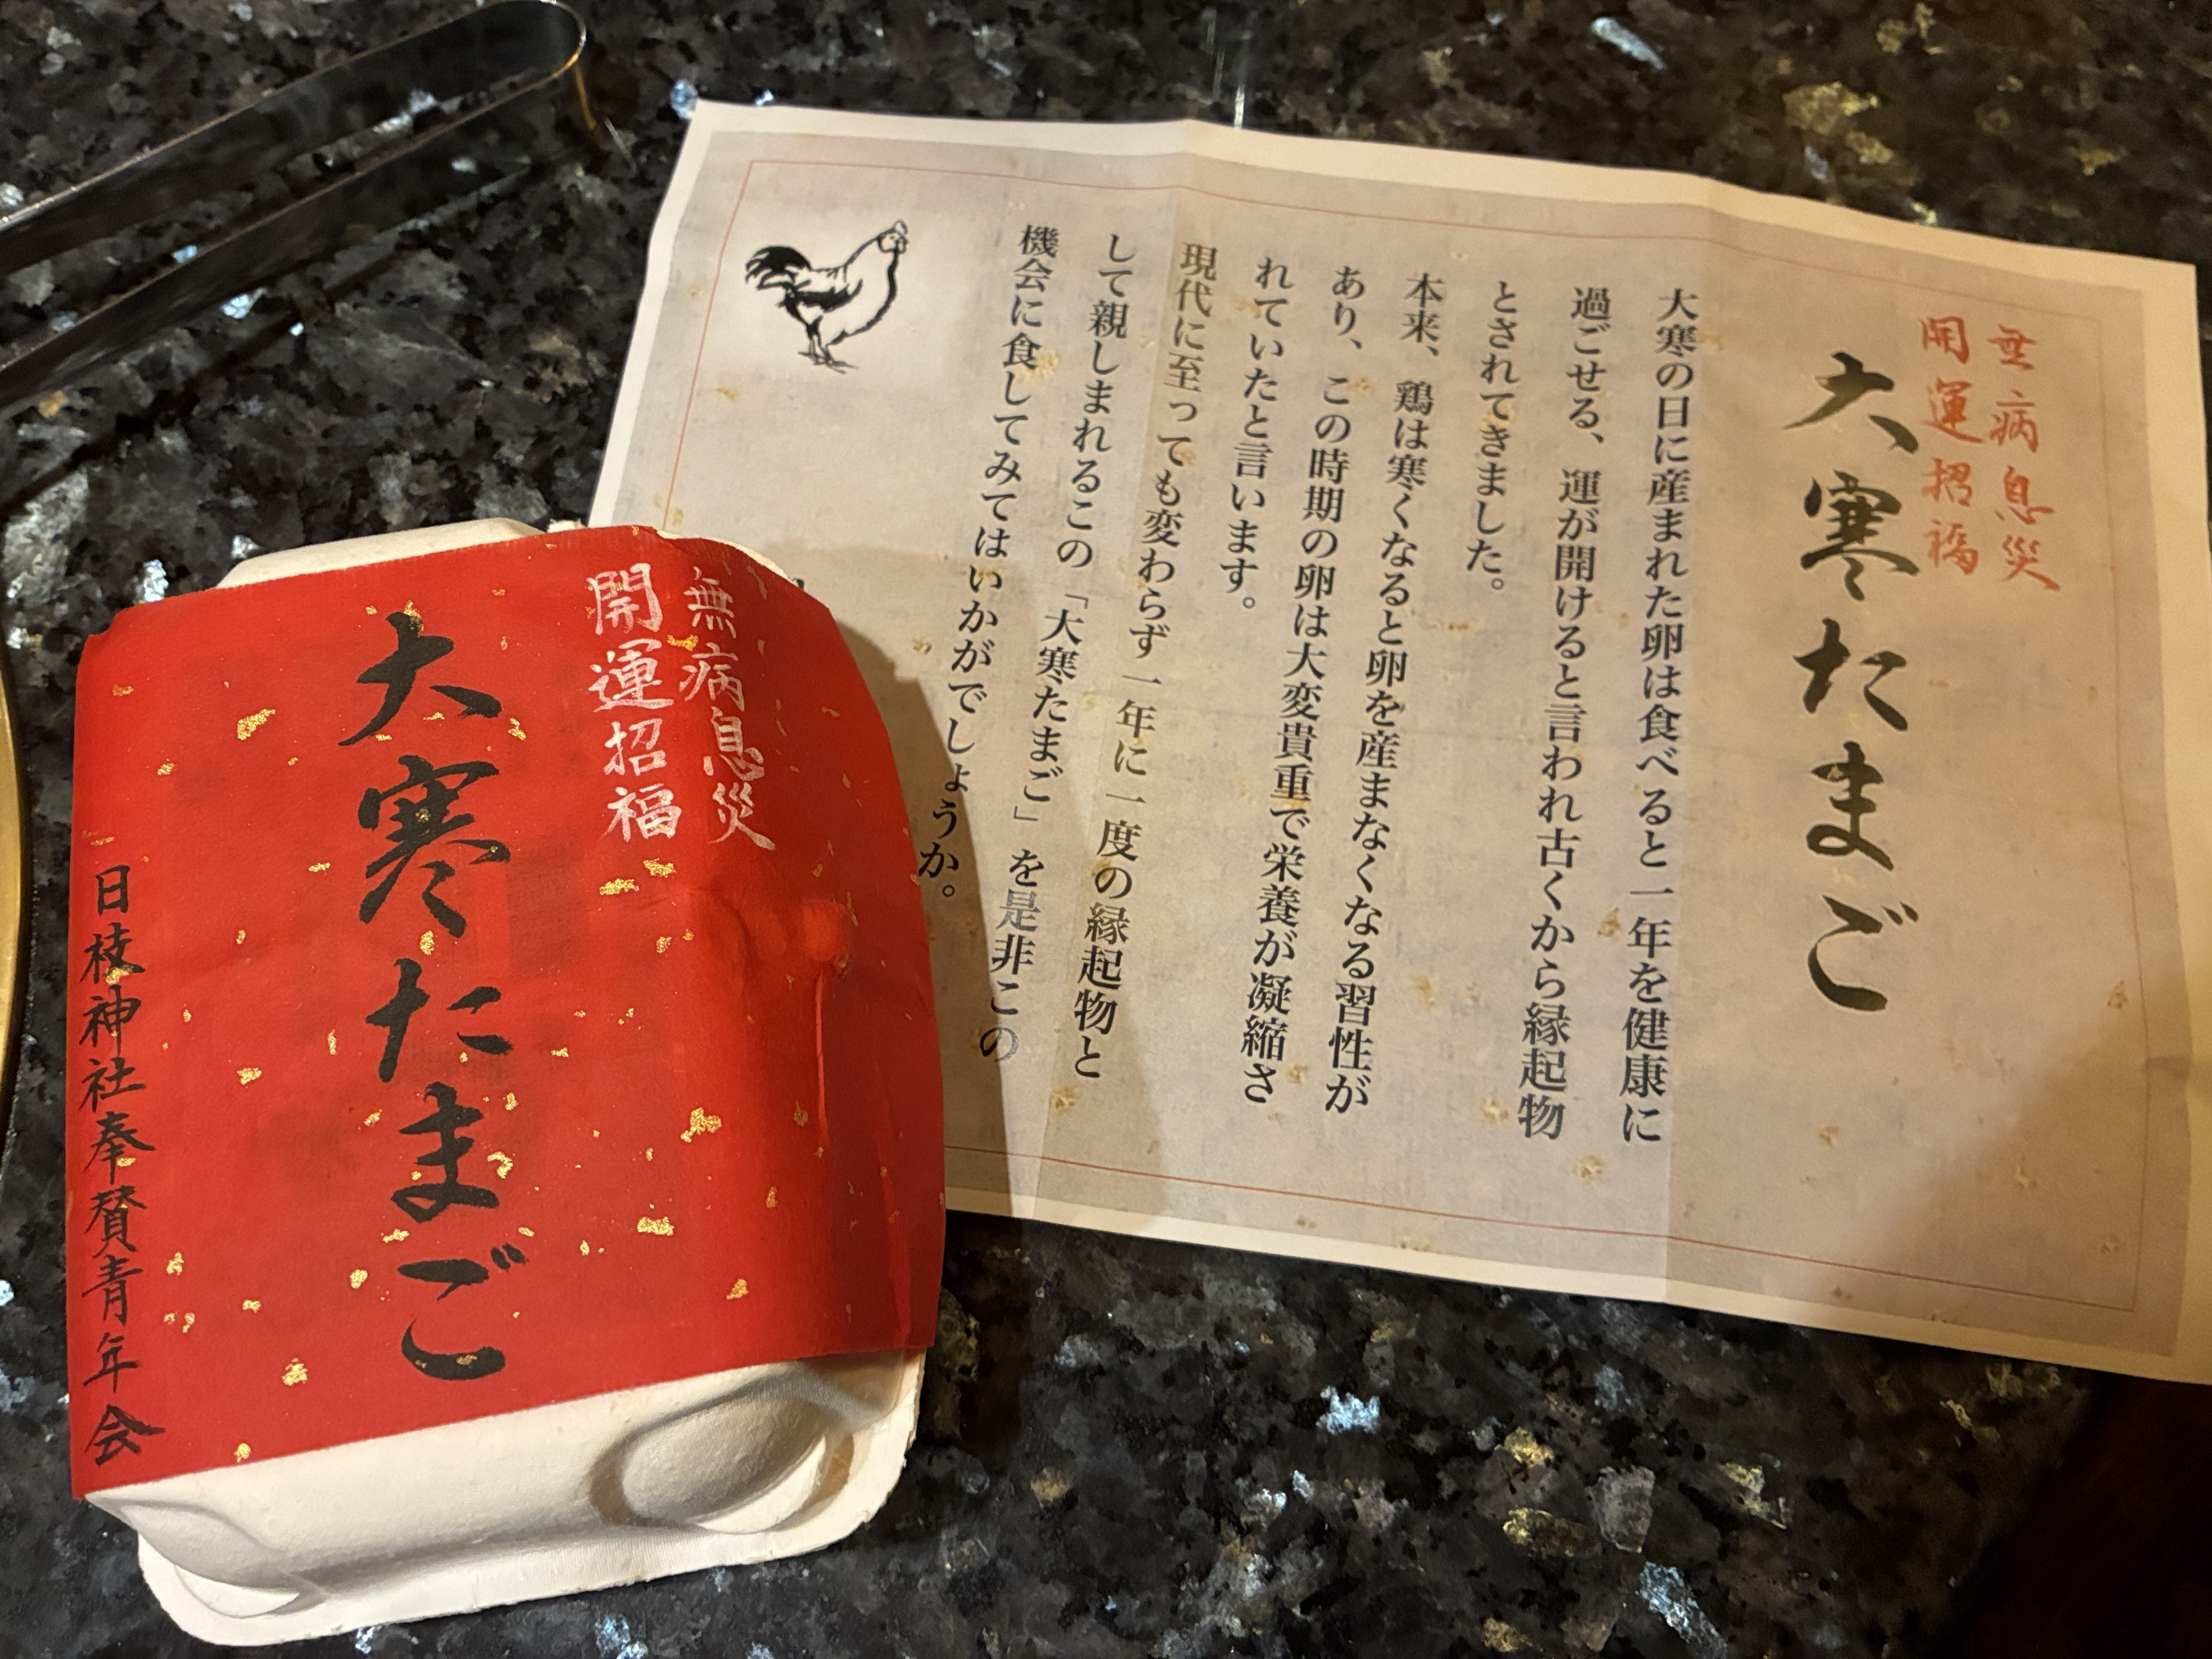 無病息災
開運招福
大寒たまご
大寒の日に産まれた卵は食べると一年を健康に
過ごせる、運が開けると言われ古くから縁起物
とされてきました。
本来、鶏は寒くなると卵を産まなくなる習性が
あり、この時期の卵は大変貴重で栄養が凝縮さ
れていたと言います。
現代に至っても変わらず一年に一度の縁起物と
して親しまれるこの「大寒たまご」を是非この
機会に食してみてはいかがでしょうか。
無病息災
開運招福
大寒たまご
日枝神社奉賛青年会